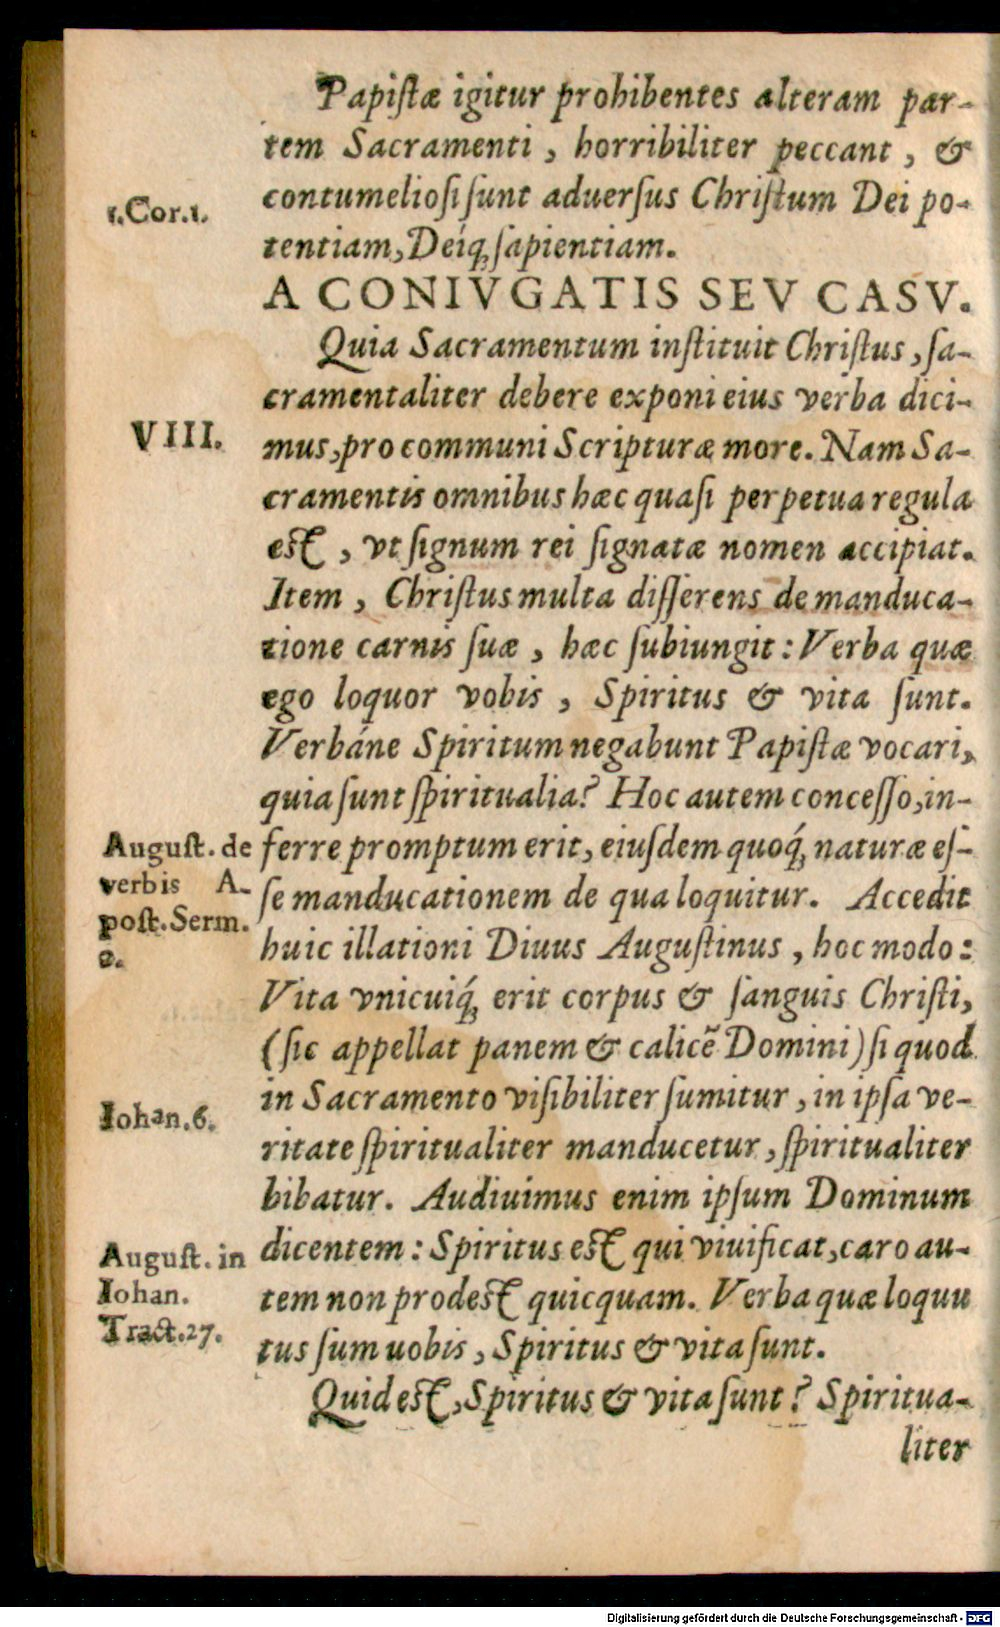 Papistæ igitur prohibentes alteram par-
tem Sacramenti, horribiliter peccant, &
contumeliosi sunt aduersus Christum Dei po-
1.Cor.1.
tentiam, Deíq; sapientiam.
A CONIVGATIS SEV CASV.
Quia Sacramentum instituit Christus, sa-
cramentaliter debere exponi eius verba dici-
VIII.
mus, pro communi Scripturæ more. Nam Sa-
cramentis omnibus hæc quasi perpetua regula
est, vt signum rei signatæ nomen accipiat.
Item, Christus multa disserens de manduca-
tione carnis suæ, hæc subiungit: Verba quæ
ego loquor vobis, Spiritus & vita sunt.
Verbáne Spiritum negabunt Papistæ vocari,
quia sunt spiritualia? Hoc autem concesso, in-
ferre promptum erit, eiusdem quoq́; naturæ es-
August. de
verbis A-
post. Serm.
2.
se manducationem de qua loquitur. Accedit
huic illationi Diuus Augustinus, hoc modo:
Vita vnicuiq́; erit corpus & sanguis Christi,
(sic appellat panem & calicẽ Domini) si quod
in Sacramento visibiliter sumitur, in ipsa ve-
Iohan.6.
ritate spiritualiter manducetur, spiritualiter
bibatur. Audiuimus enim ipsum Dominum
dicentem: Spiritus est qui viuificat, caro au-
August. in
Iohan.
Tract.27.
tem non prodest quicquam. Verba quæ loquu
tus sum uobis, Spiritus & vita sunt.
Quid est, Spiritus & vita sunt? Spiritua-
liter
Digitalisierung gefördert durch die Deutsche Forschungsgemeinschaft - DFG